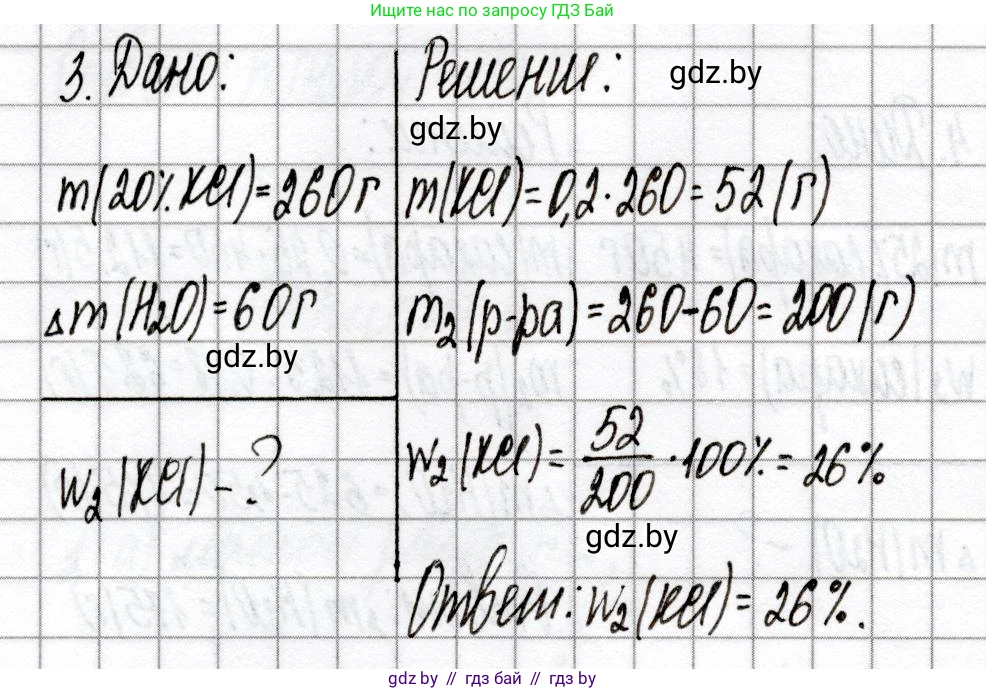 Ищите нас по запросу ГДЗ Бай
3. Дано:
m(20% KCl) = 260 г
Δm(H₂O) = 60 г
gdz.by
w₂(KCl) - ?
Решение:
gdz.by
gdz.by
m(KCl) = 0,2 · 260 = 52 (г)
m₂(р-ра) = 260 - 60 = 200 (г)
w₂(KCl) = 52/200 · 100% = 26%
gdz.by
Ответ: w₂(KCl) = 26%.
gdz.by // гдз бай // гдз by